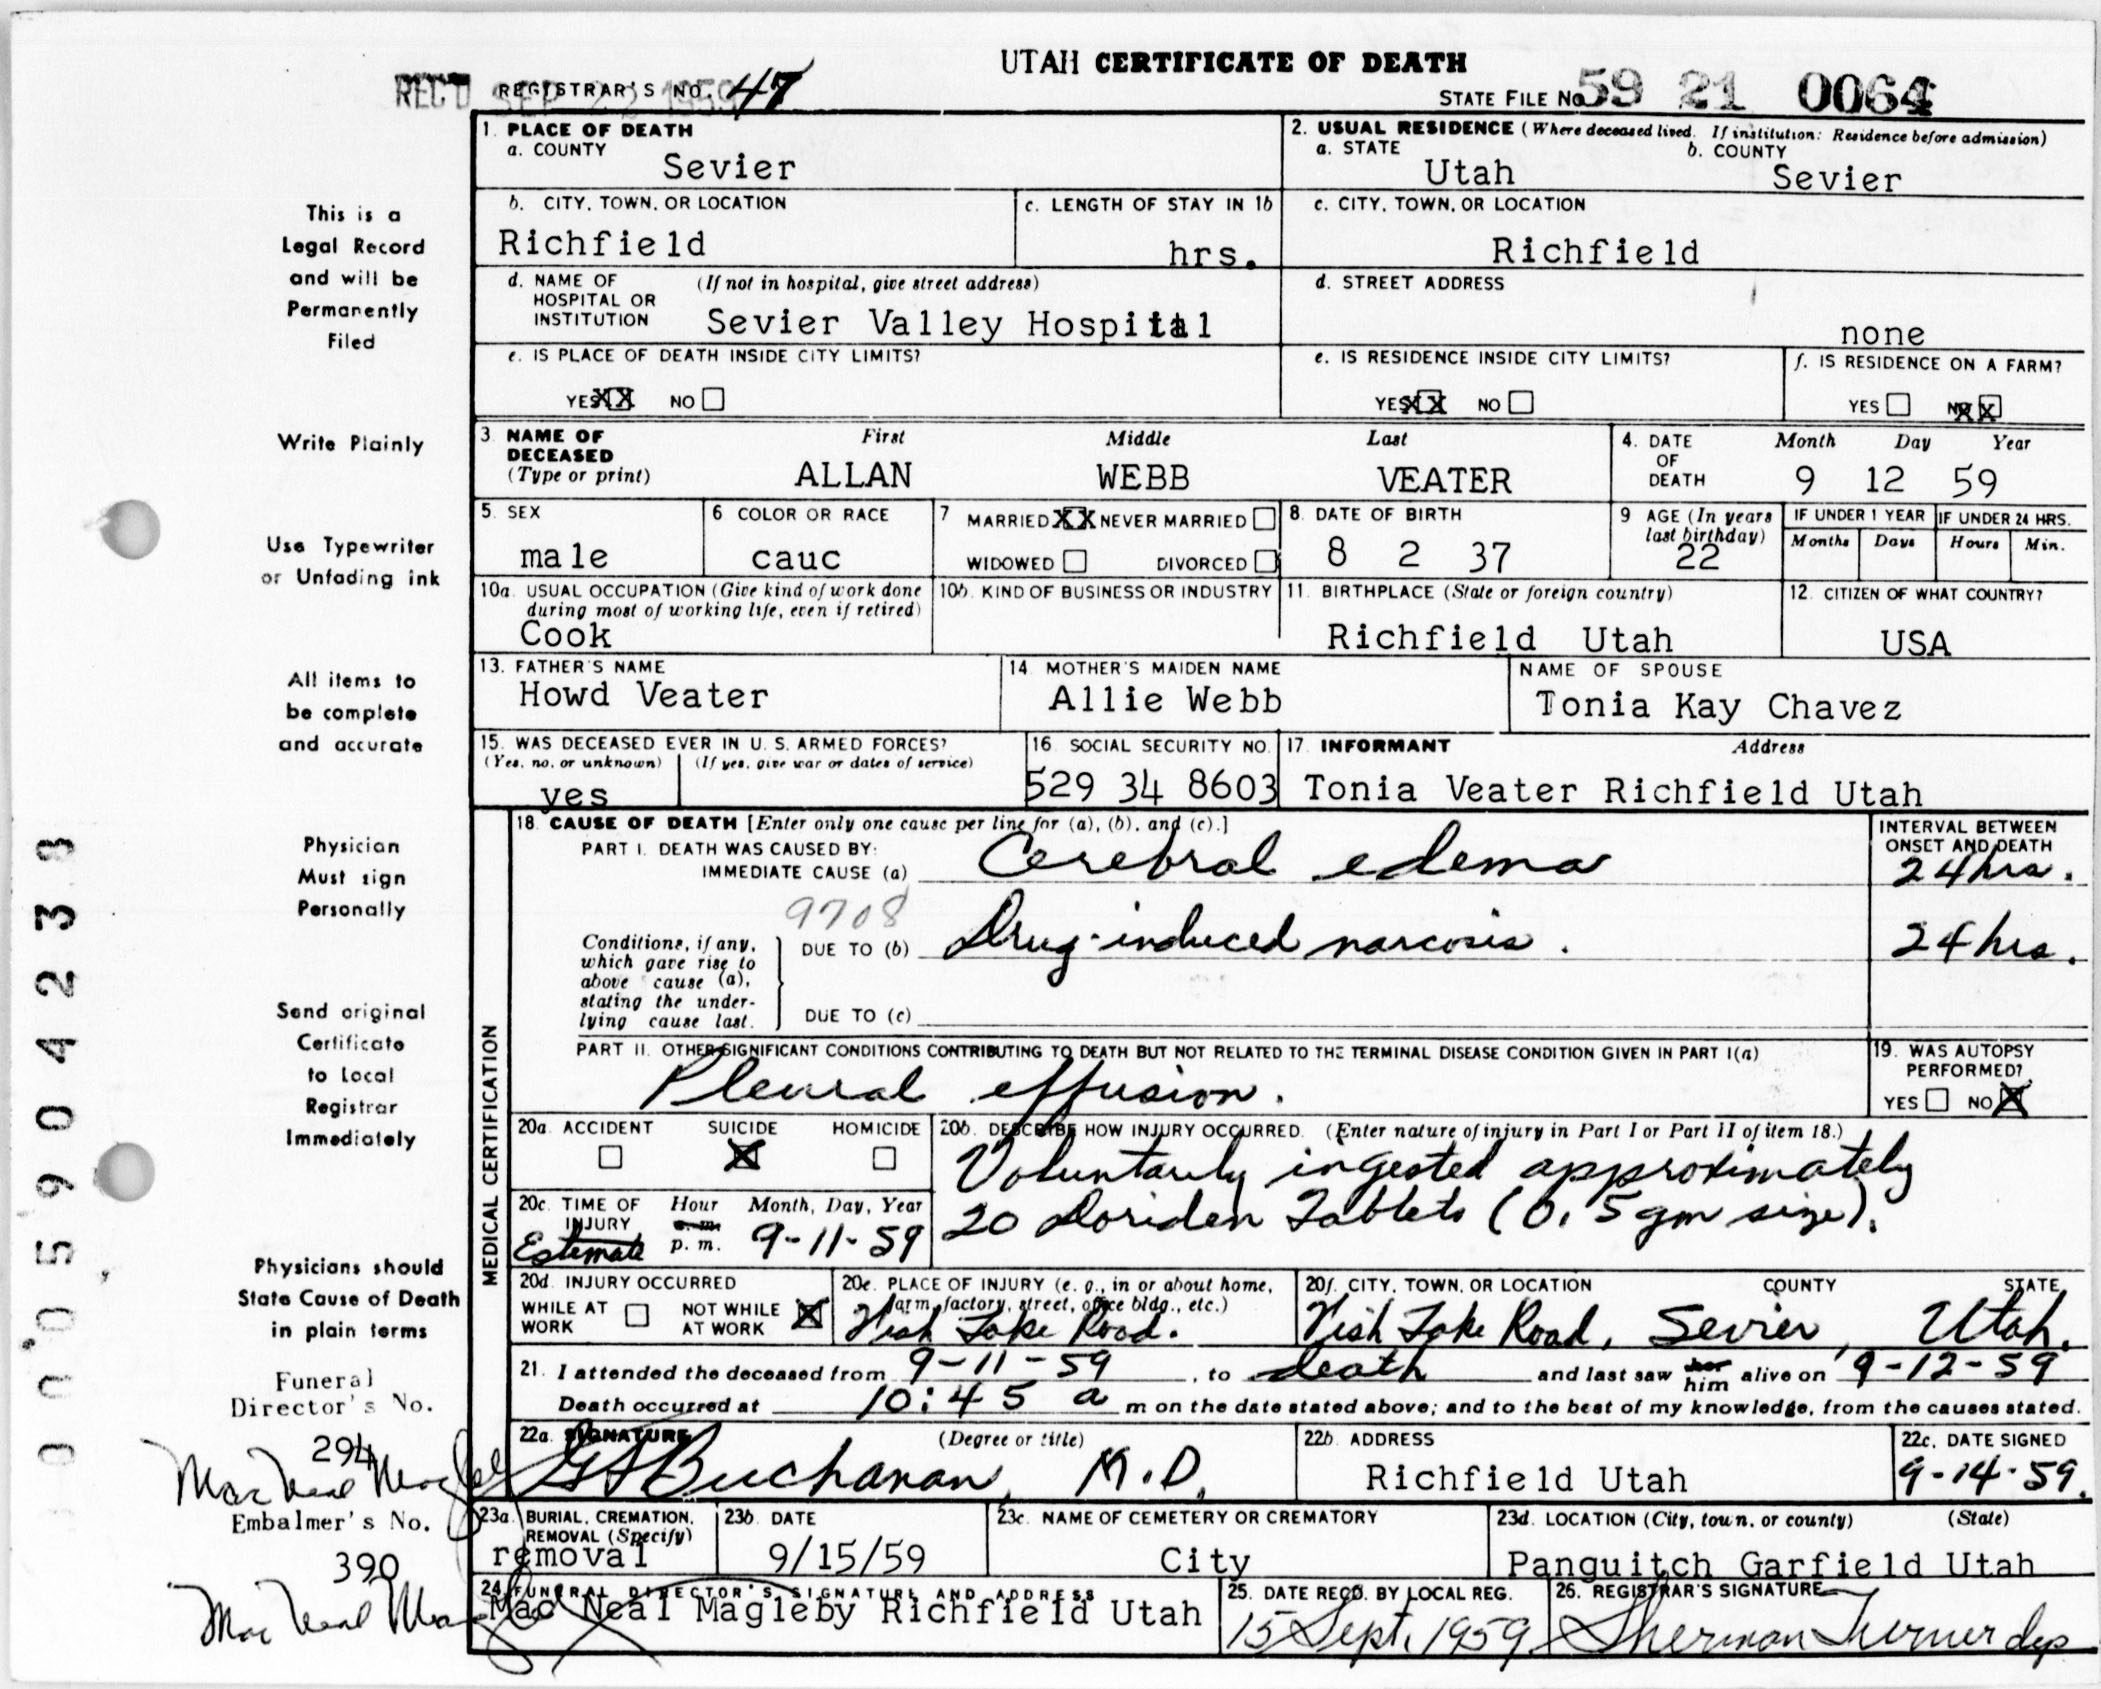 UTAH CERTIFICATE OF DEATH
REC'D SEP 22 1959
REGISTRAR'S NO. 47
STATE FILE No 59 21 0064
1. PLACE OF DEATH
a. COUNTY
Sevier
2. USUAL RESIDENCE (Where deceased lived. If institution: Residence before admission)
a. STATE b. COUNTY
Utah Sevier
b. CITY, TOWN, OR LOCATION
Richfield
c. LENGTH OF STAY IN 1b
hrs.
c. CITY, TOWN, OR LOCATION
Richfield
d. NAME OF (If not in hospital, give street address)
HOSPITAL OR
INSTITUTION Sevier Valley Hospital
d. STREET ADDRESS
none
e. IS PLACE OF DEATH INSIDE CITY LIMITS?
YES XX NO
e. IS RESIDENCE INSIDE CITY LIMITS?
YES XX NO
f. IS RESIDENCE ON A FARM?
YES NO XX
3. NAME OF DECEASED (Type or print)
First Middle Last
ALLAN WEBB VEATER
4. DATE OF DEATH
Month Day Year
9 12 59
5. SEX
male
6 COLOR OR RACE
cauc
7 MARRIED XX NEVER MARRIED
WIDOWED DIVORCED
8. DATE OF BIRTH
8 2 37
9 AGE (In years last birthday)
22
IF UNDER 1 YEAR
Months Days
IF UNDER 24 HRS.
Hours Min.
10a. USUAL OCCUPATION (Give kind of work done
during most of working life, even if retired)
Cook
10b. KIND OF BUSINESS OR INDUSTRY
11. BIRTHPLACE (State or foreign country)
Richfield Utah
12. CITIZEN OF WHAT COUNTRY?
USA
13. FATHER'S NAME
Howd Veater
14. MOTHER'S MAIDEN NAME
Allie Webb
NAME OF SPOUSE
Tonia Kay Chavez
15. WAS DECEASED EVER IN U. S. ARMED FORCES?
(Yes, no, or unknown) (If yes, give war or dates of service)
yes
16. SOCIAL SECURITY NO.
529 34 8603
17. INFORMANT Address
Tonia Veater Richfield Utah
18. CAUSE OF DEATH [Enter only one cause per line for (a), (b), and (c).]
PART I. DEATH WAS CAUSED BY:
IMMEDIATE CAUSE (a) Cerebral edema
INTERVAL BETWEEN
ONSET AND DEATH
24 hrs.
9708
Conditions, if any,
which gave rise to
above cause (a),
stating the under-
lying cause last.
DUE TO (b) Drug-induced narcosis.
24 hrs.
DUE TO (c)
PART II. OTHER SIGNIFICANT CONDITIONS CONTRIBUTING TO DEATH BUT NOT RELATED TO THE TERMINAL DISEASE CONDITION GIVEN IN PART I(a)
Pleural effusion.
19. WAS AUTOPSY
PERFORMED?
YES NO X
MEDICAL CERTIFICATION
20a. ACCIDENT SUICIDE HOMICIDE
X
20b. DESCRIBE HOW INJURY OCCURRED. (Enter nature of injury in Part I or Part II of item 18.)
Voluntarily ingested approximately
20 Doriden Tablets (0.5 gm size).
20c. TIME OF INJURY Hour Month, Day, Year
Estimate a. m. p. m. 9-11-59
20d. INJURY OCCURRED
WHILE AT WORK NOT WHILE AT WORK X
20e. PLACE OF INJURY (e. g., in or about home,
farm, factory, street, office bldg., etc.)
Fish Lake Road.
20f. CITY, TOWN, OR LOCATION COUNTY STATE
Fish Lake Road, Sevier, Utah.
21. I attended the deceased from 9-11-59, to death and last saw her him alive on 9-12-59
Death occurred at 10:45 a m on the date stated above; and to the best of my knowledge, from the causes stated.
22a. SIGNATURE (Degree or title)
Buchanan, M.D.
22b. ADDRESS
Richfield Utah
22c. DATE SIGNED
9-14-59.
23a. BURIAL, CREMATION,
REMOVAL (Specify)
removal
23b. DATE
9/15/59
23c. NAME OF CEMETERY OR CREMATORY
City
23d. LOCATION (City, town, or county) (State)
Panguitch Garfield Utah
24. FUNERAL DIRECTOR'S SIGNATURE AND ADDRESS
Mac Neal Magleby Richfield Utah
25. DATE RECD. BY LOCAL REG.
15 Sept. 1959
26. REGISTRAR'S SIGNATURE
Sherman Turner dep
This is a
Legal Record
and will be
Permanently
Filed
Write Plainly
Use Typewriter
or Unfading ink
All items to
be complete
and accurate
Physician
Must sign
Personally
Send original
Certificate
to Local
Registrar
Immediately
Physicians should
State Cause of Death
in plain terms
Funeral
Director's No.
294
Mac Neal Magleby
Embalmer's No.
390
Mac Neal Magleby